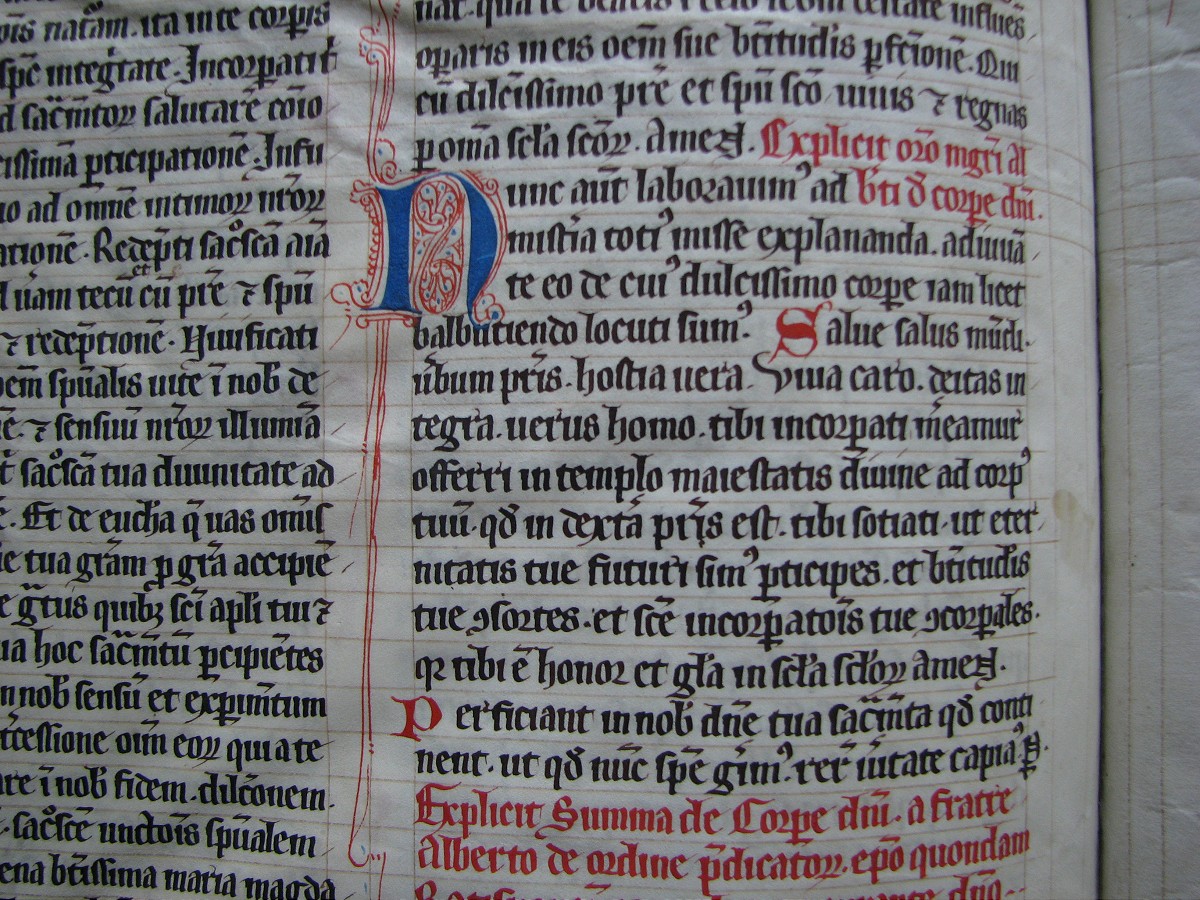 ita in te corpis
spē integ̃tate. Incorpatit᷑
d sac̃m̃toꝝ salutar̃e cōio
cissimā pticipationē. Infu
uo ad om̃ē intimoꝝ nr̃oꝝ
ationē. Redēpti sac°scā aīa
tecū cū pr̃e ⁊ spū
⁊ redēptionē. Uiuificati
spūalis uite ī nob̄ de
⁊ sensuū nr̃oꝝ illumīa
sac°scā tua diuinitate ad
Et de euchā q̄ uas om̄is
tua gr̃am p gr̃a accipiē
quibꝫ sc̄i apl̄i tui ⁊
hoc sac̃m̃tū ꝑcipiētes
nob̄ sensū et expim̃tum
cessione oīm eoꝝ qui a te
ī nob̄ fidem. dilc̃onem.
sac°sc̄e unctōis spūalem
bt̄issima maria magda
opar̄is in eis oēm sue bt̄itudīs pf̄cionē. Qui
cū dilc̄issimo pr̄e et spū sc̄o uiuis ⁊ regnas
p om̄ia scl̄a scl̄oꝝ. Amen. Explicit or̄o mgr̄i al
unc aūt laborauimꝰ ad b̄ti d̄ corpe dn̄i.
mist̄ia totiꝰ misse explananda. adiuuā
te eo de cuiꝰ dulcissimo corpe iam licet
balbutiendo locuti sumꝰ. Salue salus mūdi.
ūbum pr̄is. hostia uera. Uiua caro. deitas in
tegra. uerus homo. tibi incorpati m̄eamur
offerri in templo maiestatis diuine ad corpꝰ
tuū. qd̄ in dext̄a pr̄is est. tibi sotiati. ut eter
nitatis tue futuri simꝰ pticipes. et bt̄itudīs
tue ꝯsortes. et sc̄e incorpatōis tue ꝯcorpales.
qr tibi ē honor et gl̄a in scl̄a scl̄oꝝ amen.
Perficiant in nob̄ dn̄e tua sac̃m̃ta qd̄ conti
nent. ut qd̄ nūc spē gim̄ꝰ. rer̄ ūitate capiaꝰ. P.
Explicit Summa de Corpe dn̄i. a fratre
Alberto de ordine p̄dicatoꝝ. ep̄o quondam